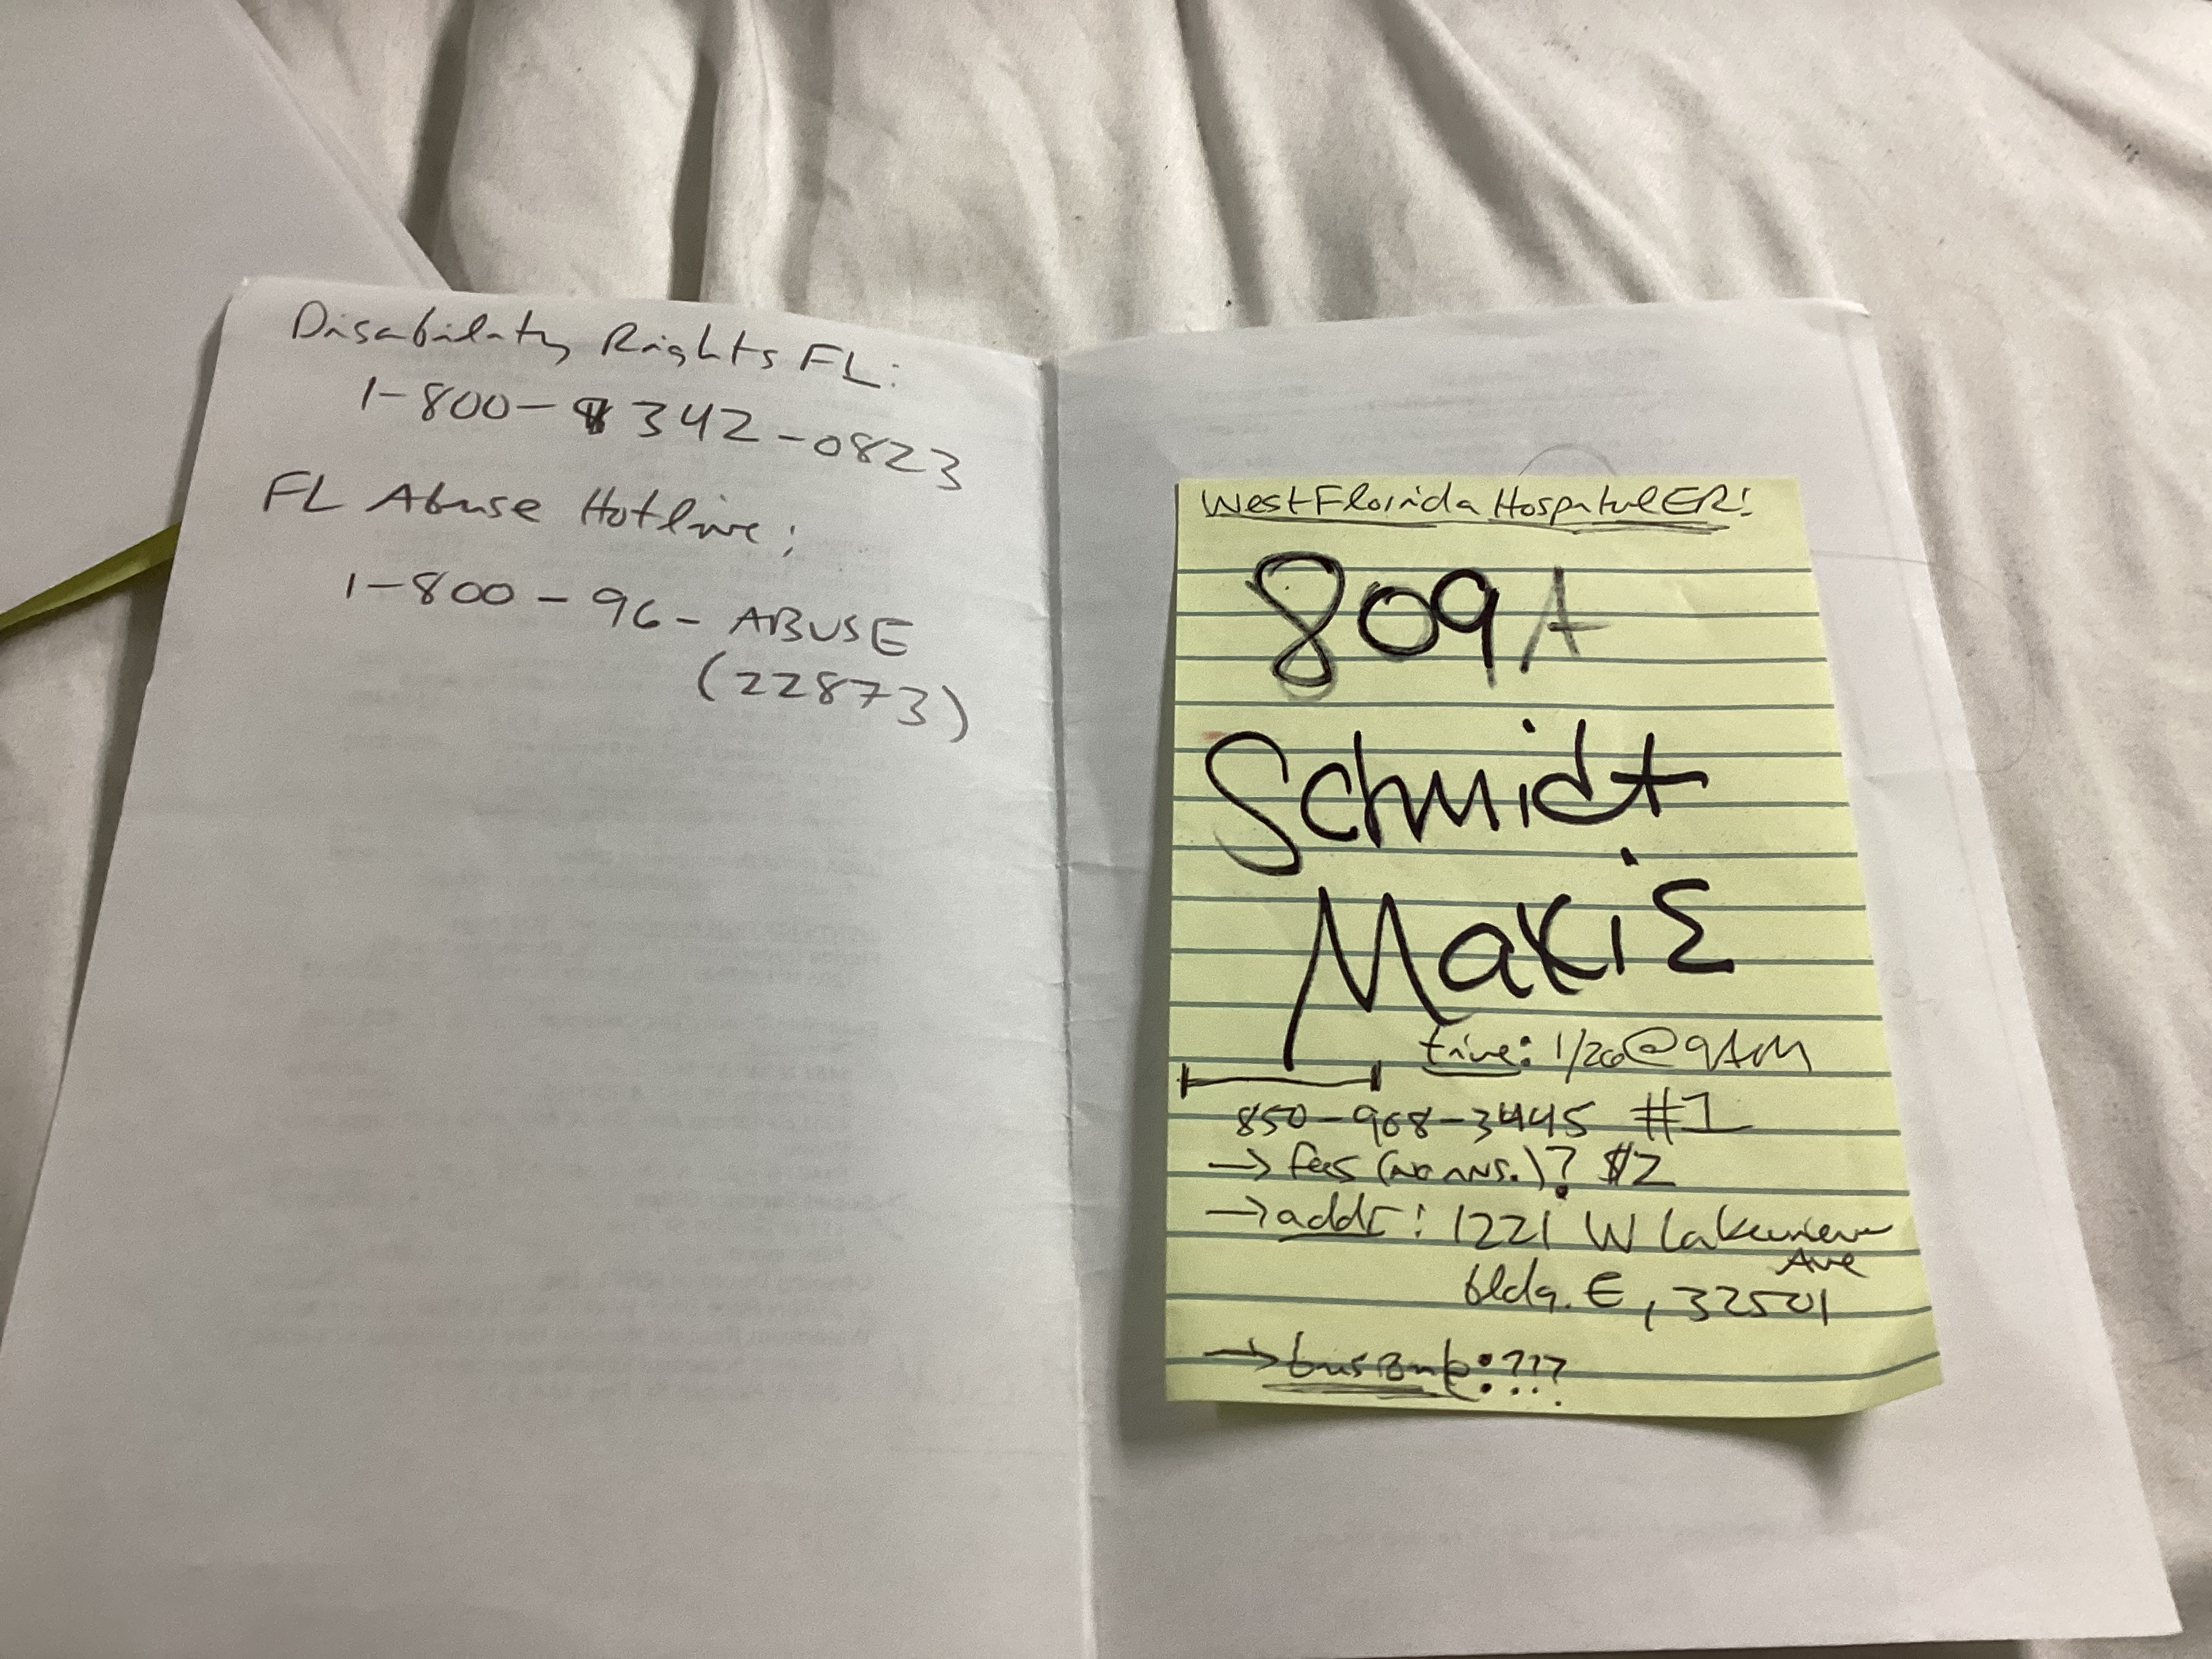 Disability Rights FL:
1-800-342-0823
FL Abuse Hotline:
1-800-96-ABUSE
(22873)
West Florida Hospital ER:
809A
Schmidt
MaKiE
time: 1/26@9AM
850-968-3445 #1
→ fees (no ins.)? $2
→ addr: 1221 W Lakeview
Ave
bldg. E, 32501
→ bus :???